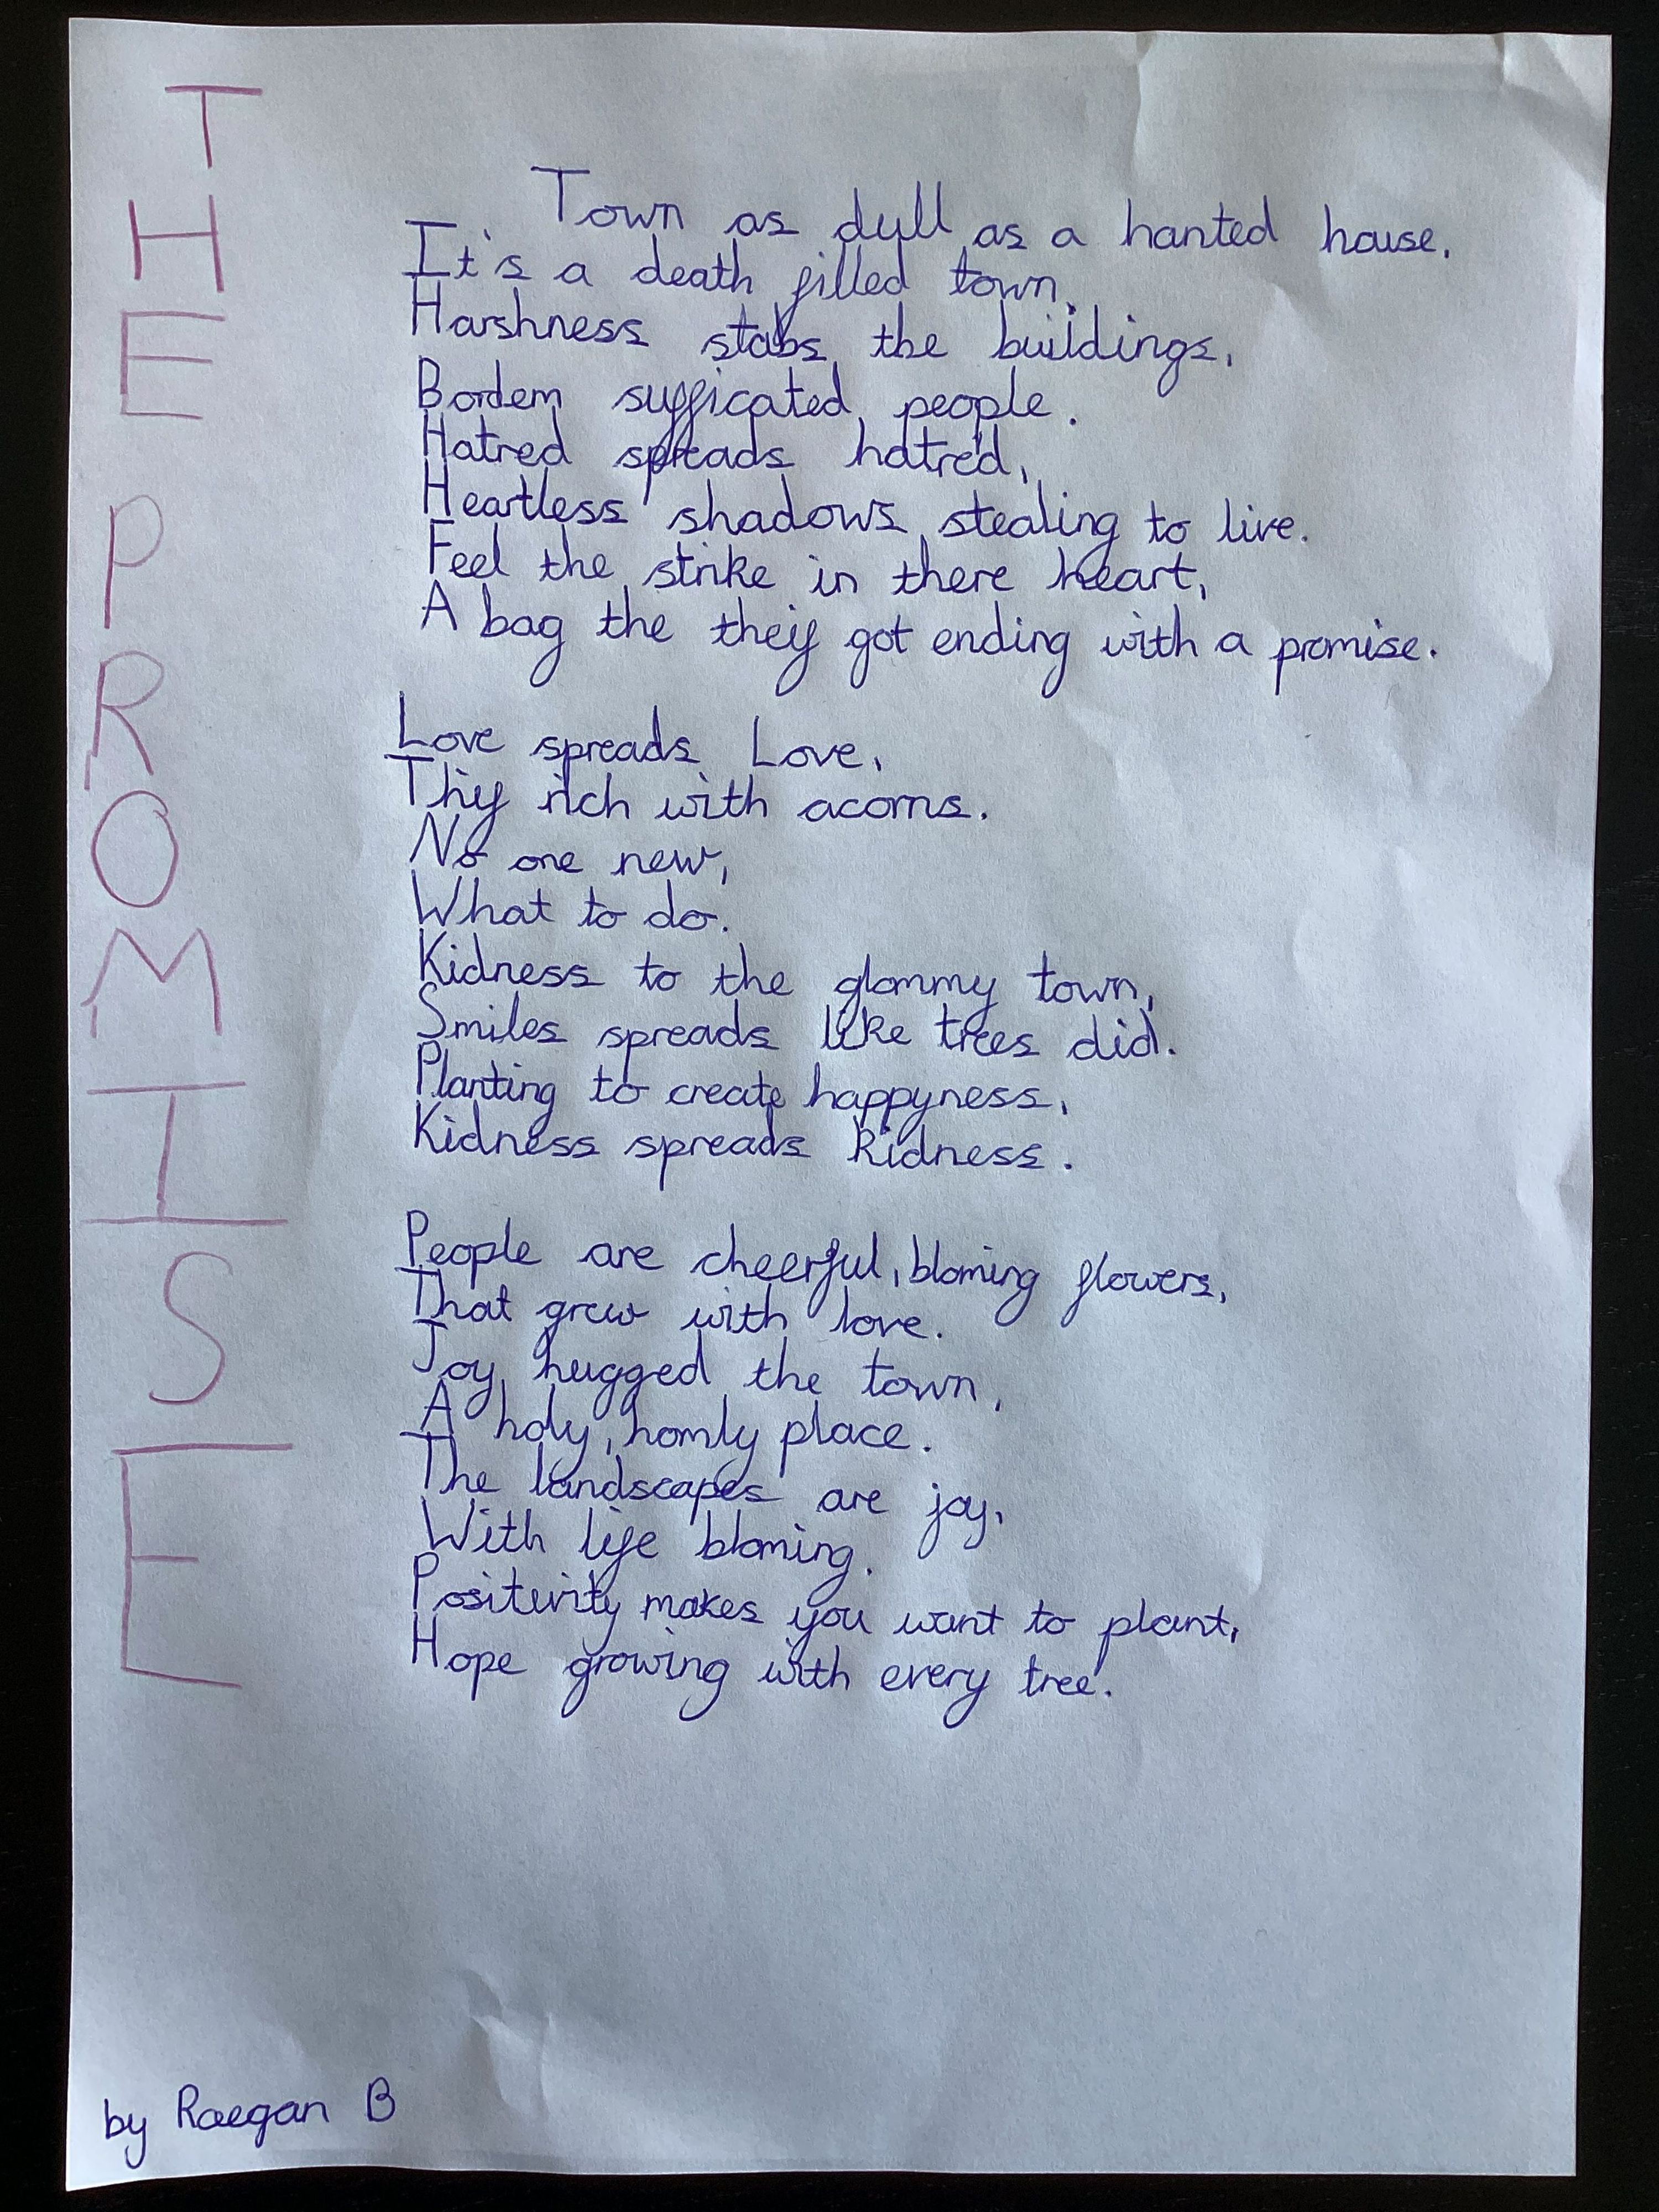 THE PROMISE
Town as dull as a hanted house.
It's a death filled town,
Harshness stabs the buildings,
Bordem sufficated people.
Hatred spreads hatred,
Heartless shadows stealing to live.
Feel the strike in there heart,
A bag the they got ending with a promise.
Love spreads Love,
Thiy rich with acorns.
No one new,
What to do.
Kidness to the glommy town,
Smiles spreads like trees did.
Planting to create happyness,
Kidness spreads kidness.
People are cheerful, bloming flowers,
That grew with love.
Joy hugged the town,
A holy, homly place.
The landscapes are joy,
With life bloming.
Positevity makes you want to plant,
Hope growing with every tree.
by Raegan B